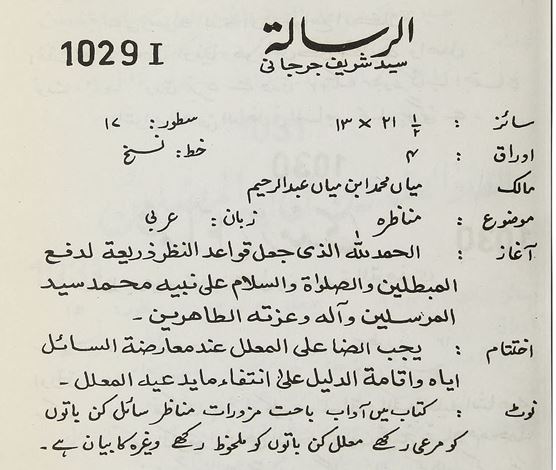 الرسالة
1029 I
سید شریف جرجانی
سائز : ۲۱ ½ × ۱۳ سطور: ۱۷
اوراق : ۴ خط: نسخ
مالک : میاں محمد ابن میاں عبدالرحیم
موضوع : مناظرہ زبان: عربی
آغاز : الحمد للہ الذی جعل قواعد النظر ذریعة لدفع
المبطلین والصلواة والسلام علی نبیه محمد سید
المرسلین وآله وعزته الطاهرین -
اختتام : یجب الضا علی المعلل عند معارضة السائل
ایاه واقامة الدلیل علی انتفاء ماید عیه المعلل -
نوٹ : کتاب میں آداب باحث مزورات مناظر سائل کن باتوں
کو مرعی رکھے معلل کن باتوں کو ملحوظ رکھے وغیرہ کا بیان ہے -